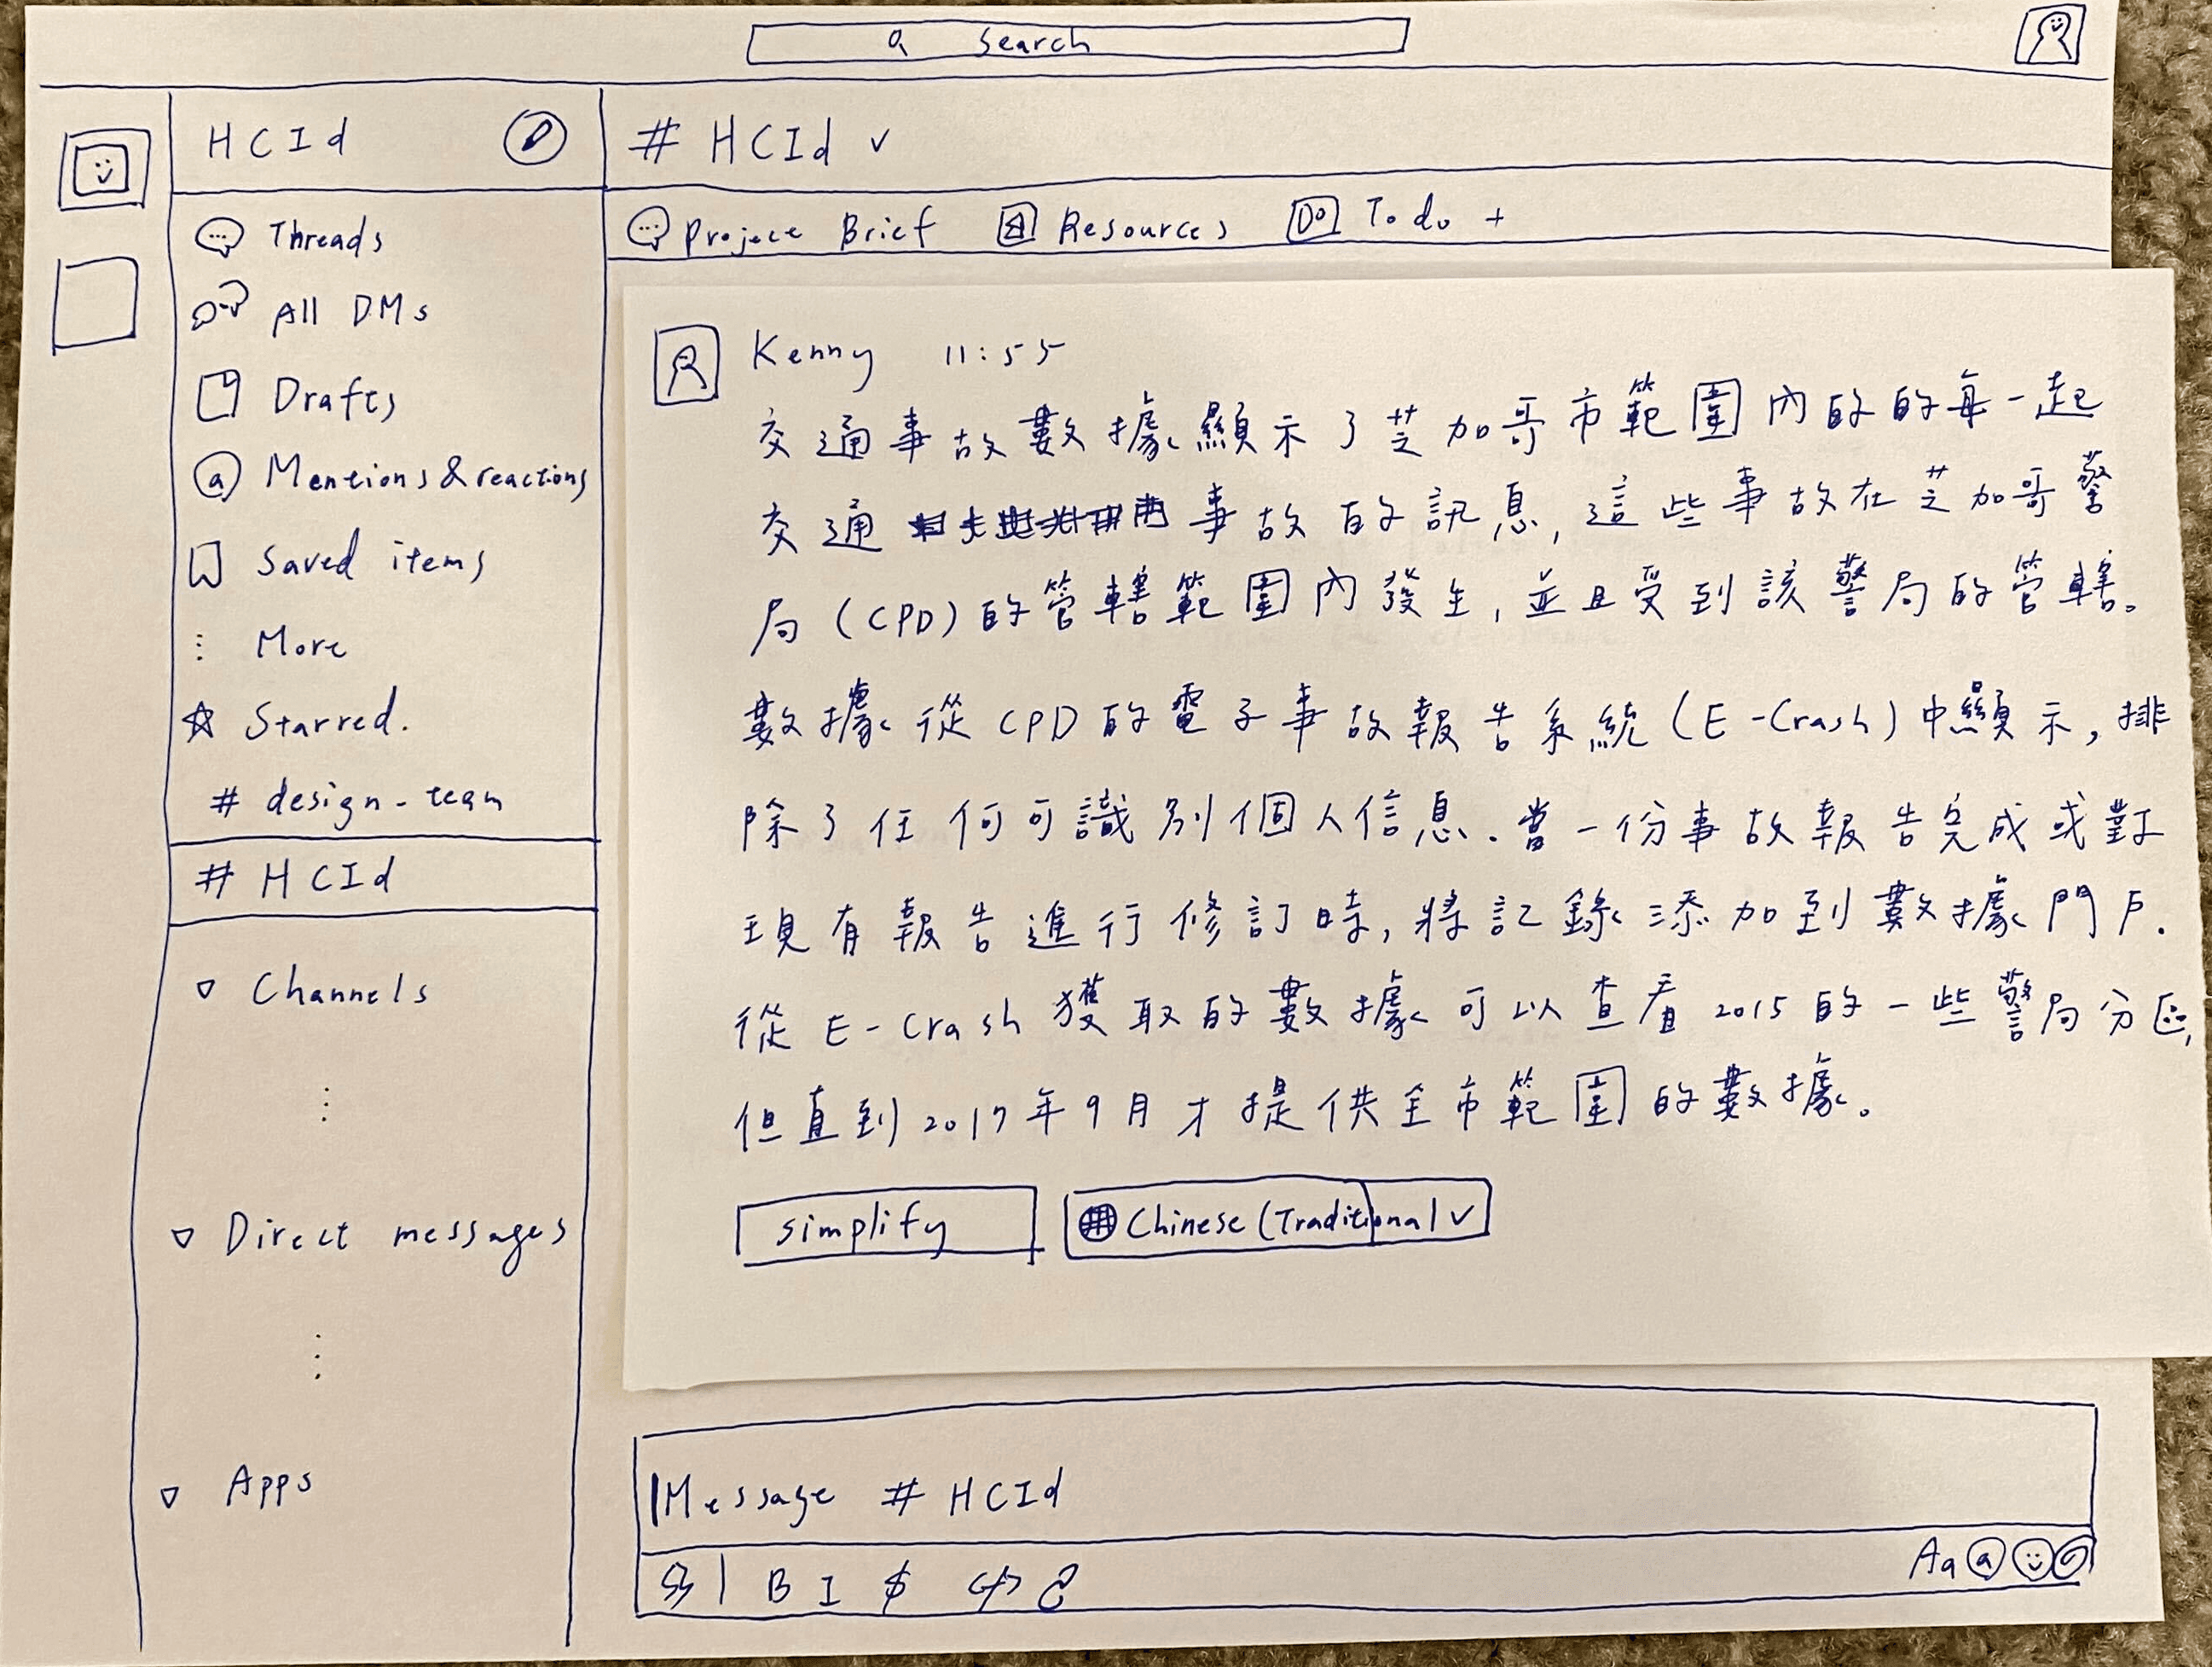 search
HCId
# HCId ✓
Threads
All DMs
Drafts
@ Mentions & reactions
Saved items
More
Starred.
# design-team
# HCId
Channels
Direct messages
Apps
Project Brief Resources Do Todo +
Kenny 11:55
交通事故數據顯示了芝加哥市範圍內的的每一起
交通事故的訊息,這些事故在芝加哥警
局(CPD)的管轄範圍內發生,並且受到該警局的管轄。
數據從CPD的電子事故報告系統(E-Crash)中顯示,排
除了任何可識別個人信息.當一份事故報告完成或對
現有報告進行修訂時,將記錄添加到數據門戶.
從E-Crash獲取的數據可以查看2015的一些警局分區,
但直到2017年9月才提供全市範圍的數據。
simplify Chinese (Traditional ✓
Message # HCId
B I $ </> Aa @